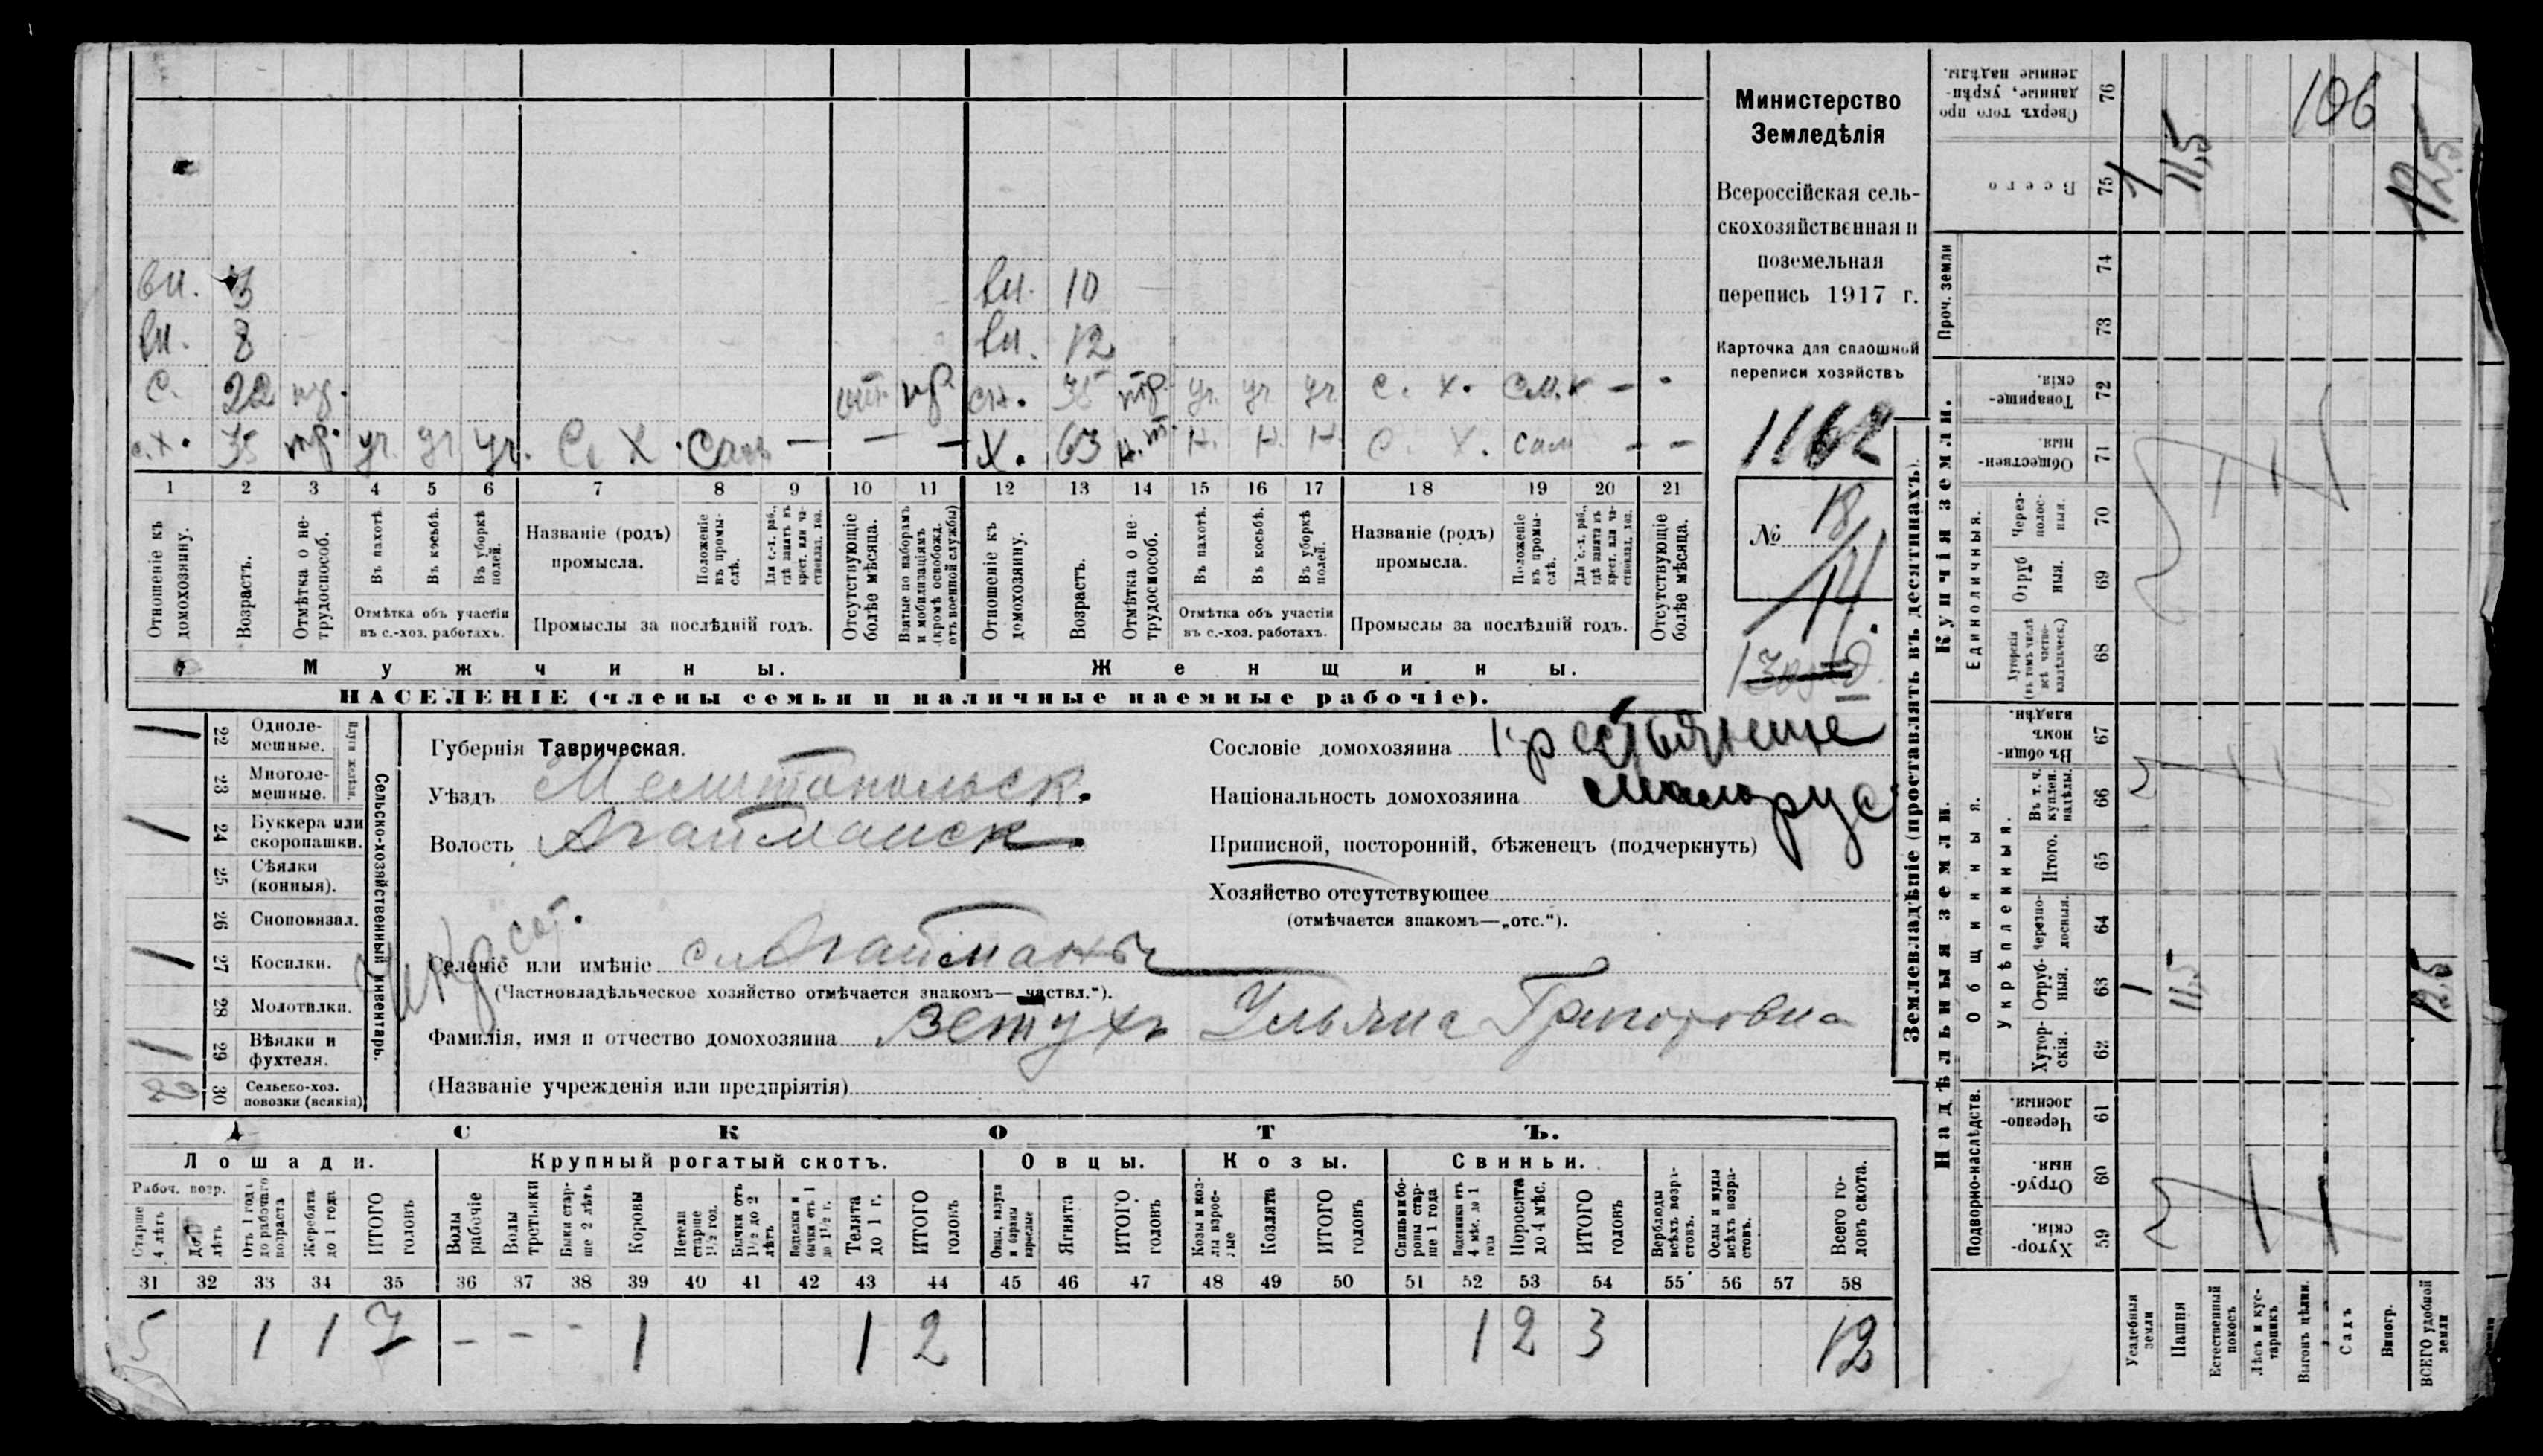 вн. 3 вн. 10
вн. 8 вн. 12
с. 22 тр. от. пр. сн. 35 тр. уч. уч. уч. с. х. — -
с.х. 35 тр. уч. уч. уч. С. Х. сам — — — Х. 63 н.т. н. н. н. С. Х. сам — —
1 2 3 4 5 6 7 8 9 10 11 12 13 14 15 16 17 18 19 20 21
Отношеніе къ домохозяину.
Возрастъ.
Отмѣтка о нетрудоспособ.
Въ пахотѣ.
Въ косьбѣ.
Въ уборкѣ полей.
Отмѣтка объ участіи въ с.-хоз. работахъ.
Названіе (родъ) промысла.
Положеніе въ промыслѣ.
Для с.-х. раб., гдѣ занятъ въ крест. или частновлад. хоз.
Промыслы за послѣдній годъ.
Отсутствующіе болѣе мѣсяца.
Взятые по наборамъ и мобилизаціямъ (кромѣ освобожд. отъ военной службы)
Отношеніе къ домохозяину.
Возрастъ.
Отмѣтка о нетрудоспособ.
Въ пахотѣ.
Въ косьбѣ.
Въ уборкѣ полей.
Отмѣтка объ участіи въ с.-хоз. работахъ.
Названіе (родъ) промысла.
Положеніе въ промыслѣ.
Для с.-х. раб., гдѣ занята въ крест. или частновлад. хоз.
Промыслы за послѣдній годъ.
Отсутствующіе болѣе мѣсяца.
Мужчины. Женщины.
НАСЕЛЕНІЕ (члены семьи и наличные наемные рабочіе).
Министерство
Земледѣлія
Всероссійская сель-
скохозяйственная и
поземельная
перепись 1917 г.
Карточка для сплошной
переписи хозяйствъ
1162
№ 18/
14
22 Одноле-
мешные.
23 Многоле-
мешные.
Плуги желѣзн.
24 Буккера или
скоропашки.
25 Сѣялки
(конныя).
26 Сноповязал.
27 Косилки.
28 Молотилки.
29 Вѣялки и
фухтеля.
30 Сельско-хоз.
повозки (всякія)
Сельско-хозяйственный инвентарь.
Губернія Таврическая.
Уѣздъ Мелитопольск.
Волость Агайманск
Селеніе или имѣніе с. Агайманы
(Частновладѣльческое хозяйство отмѣчается знакомъ— „частвл.“).
Фамилія, имя и отчество домохозяина Ветухъ Ульяна Григоровна
(Названіе учрежденія или предпріятія)
Сословіе домохозяина крестьяне
Національность домохозяина малорус
Приписной, посторонній, бѣженецъ (подчеркнуть)
Хозяйство отсутствующее
(отмѣчается знакомъ—„отс.“).
СКОТЪ.
Лошади. Крупный рогатый скотъ. Овцы. Козы. Свиньи.
Рабоч. возр.
Старше 4 лѣтъ
До 4 лѣтъ
Отъ 1 года до рабочаго возраста
Жеребята до 1 года
ИТОГО головъ
Волы рабочіе
Волы третьяки
Быки старше 2 лѣтъ
Коровы
Нетели старше 1½ год.
Бычки отъ 1½ до 2 лѣтъ
Телки и бычки отъ 1 до 1½ г.
Телята до 1 г.
ИТОГО головъ
Овцы, валухи и бараны взрослые
Ягнята
ИТОГО головъ
Козы и козлы взрослые
Козлята
ИТОГО головъ
Свиньи и бороны старше 1 года
Подсвинки отъ 4 мѣс. до 1 года
Поросята до 4 мѣс.
ИТОГО головъ
Верблюды всѣхъ возрастовъ.
Ослы и мулы всѣхъ возрастовъ.
Всего головъ скота.
31 32 33 34 35 36 37 38 39 40 41 42 43 44 45 46 47 48 49 50 51 52 53 54 55 56 57 58
5 1 1 7 – – – 1 1 2 1 2 3 12
Землевладѣніе (проставлять въ десятинахъ).
Купчія земли.
Надѣльныя земли.
Сверхъ того проданные, укрѣпленные надѣлы. 76 106
Всего 75 1 11,5 12,5
Проч. земли 74 73
Товарищескія. 72
Общественныя. 71
Единоличныя.
Черезполосныя. 70
Отрубныя. 69
Хуторскія (въ томъ числѣ всѣ частновладѣльческ.) 68
Общинныя.
Въ общинномъ владѣн. 67
Укрѣпленныя.
Въ т. ч. куплен. надѣлы. 66
Итого. 65
Черезполосныя. 64
Отрубныя. 63 1 11,5 12,5
Хуторскія. 62
Подворно-наслѣдств.
Черезполосныя. 61
Отрубныя. 60
Хуторскія. 59
Усадебныя земли
Пашня
Естественный покосъ
Лѣсъ и кустарникъ
Выгонъ цѣлин.
Садъ
Виногр.
ВСЕГО удобной земли